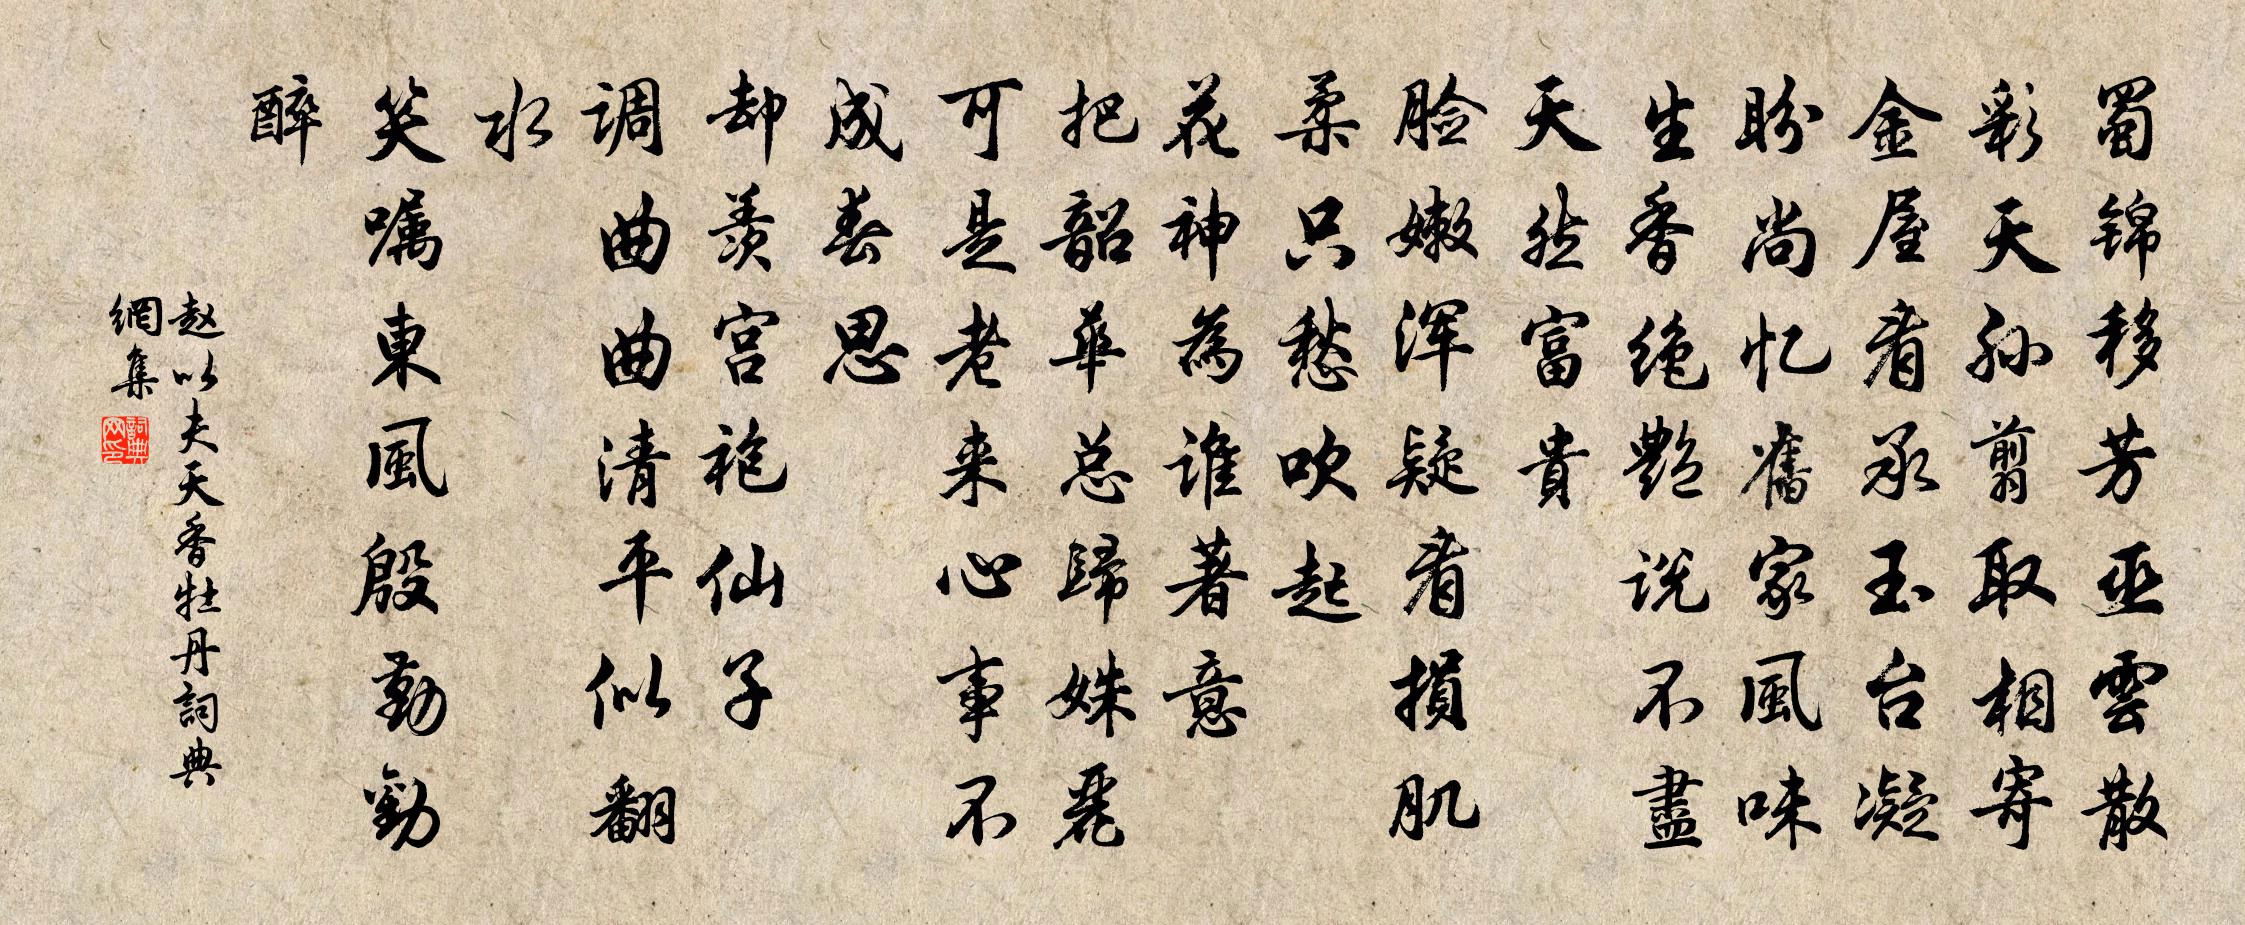 蜀锦移芳巫雲散
彩天孙翦取相寄
金屋看承玉台凝
盼尚忆舊家風味
生香绝艷说不盡
天然富貴
脸嫩浑疑看損肌
柔只愁吹起
花神為谁著意
把韶華总歸姝麗
可是老来心事不
成春思
却羡宫袍仙子
调曲曲清平似翻
水
笑嘱東風殷勤勸
醉
赵以夫天香牡丹詞典
網集
詞典
网印